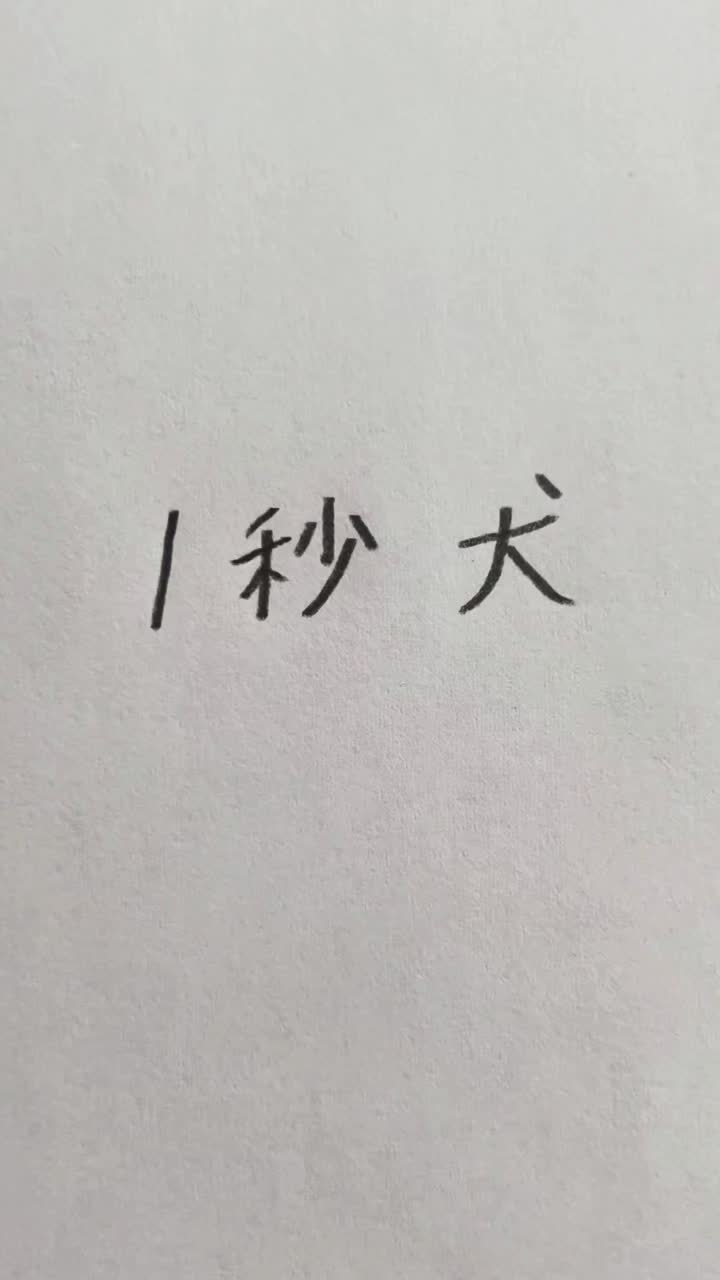 1秒犬